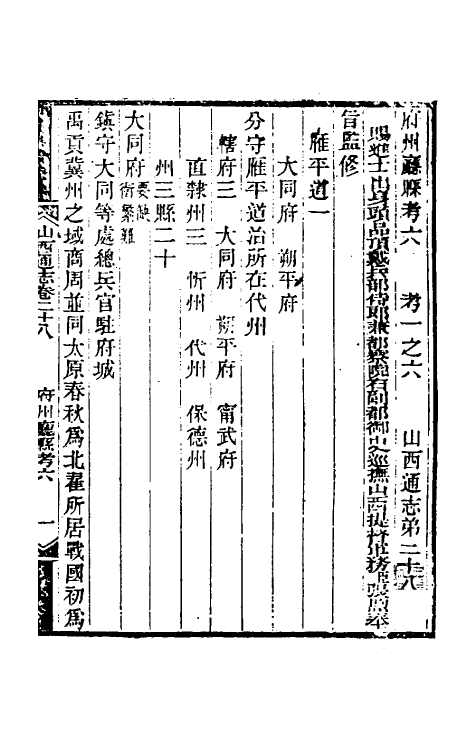 府州廳縣考六　考一之六　山西通志第二十八
賜進士出身頭品頂戴兵部侍郎兼都察院右副都御史巡撫山西提督軍務　張煦奉
旨監修
雁平道一
大同府　朔平府
分守雁平道治所在代州
轄府三　大同府　朔平府　甯武府
直隸州三　忻州　代州　保德州
州三縣二十
大同府　要缺
衝繁難
鎮守大同等處總兵官駐府城
禹貢冀州之域商周並同太原春秋爲北翟所居戰國初爲
山西通志卷二十八　府州廳縣考六　一